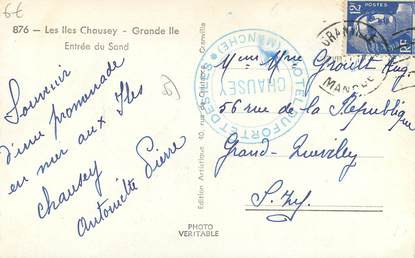 6€
876 - Les Iles Chausey - Grande Ile
Entrée du Sund
Souvenir
d'une promenade
en mer aux Iles
Chausey
Antoinette Pierre
Edition Artistique
PHOTO
VERITABLE
HOTEL DU FORT ET DES ILES
CHAUSEY
(MANCHE)
GRANVILLE
MANCHE
POSTES
12F
Mme Groult Aug.
56 rue de la République
Grand-Quevilly
S. Inf.